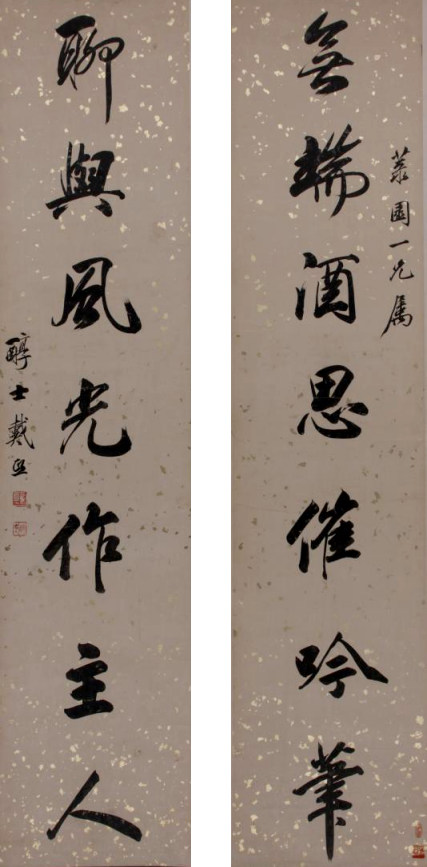 園一兄屬
無端酒思催吟筆
聊與風光作主人
醇士戴熙